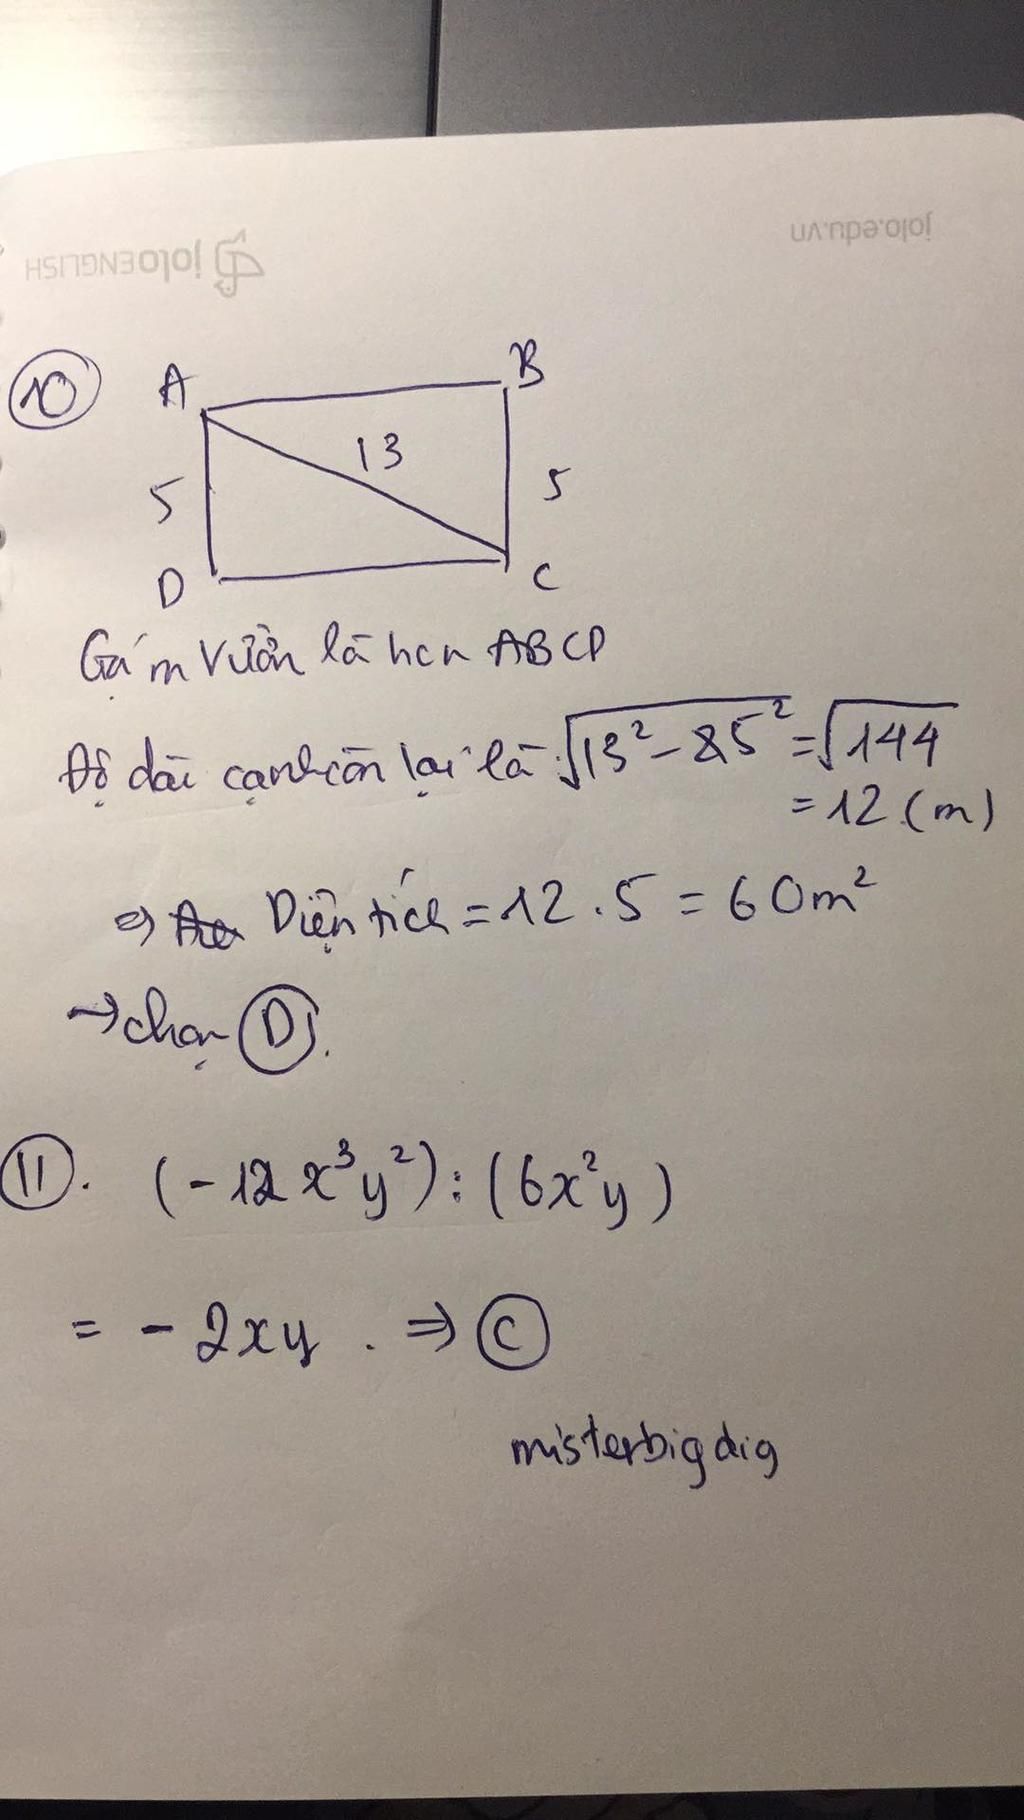 jolo.edu.vn
joloENGLISH
10
A B
13
5 5
D C
Gọi m vườn là hcn ABCD
Độ dài cạnh còn lại là √13² - 5² = √144
= 12 (m)
=> Diện tích = 12 . 5 = 60m²
→ chọn D.
11. (-12x³y²) : (6x²y)
= - 2xy . => C
misterbigdig